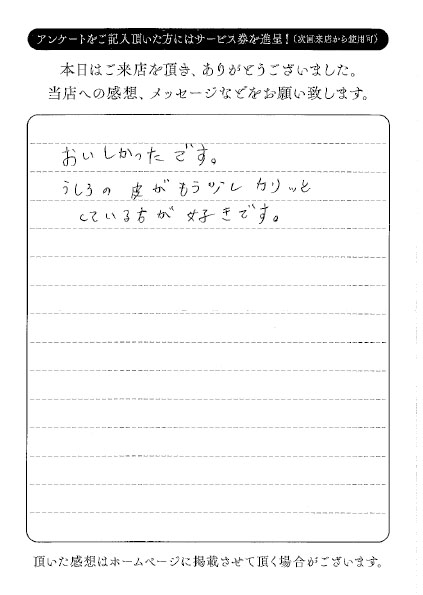 アンケートをご記入頂いた方にはサービス券を進呈！(次回来店から使用可)
本日はご来店を頂き、ありがとうございました。
当店への感想、メッセージなどをお願い致します。
おいしかったです。
うしろの皮がもう少しカリッと
している方が好きです。
頂いた感想はホームページに掲載させて頂く場合がございます。